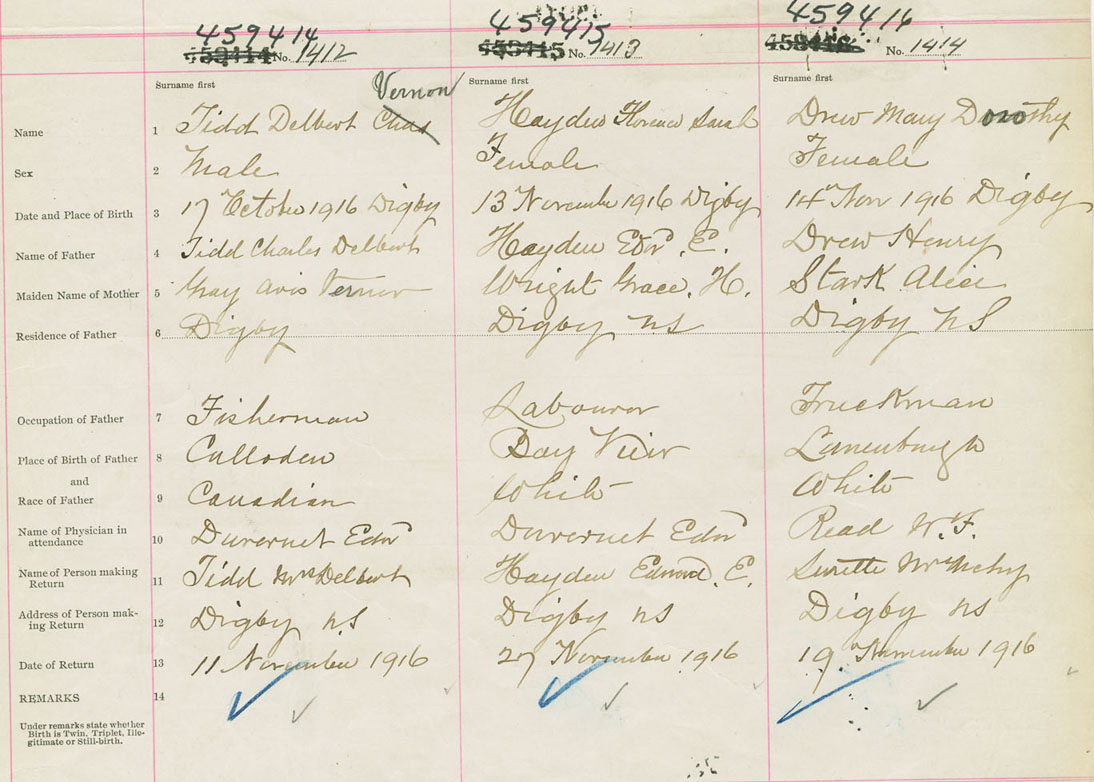 459414 459415 459416
No. 1412 No. 1413 No. 1414
Surname first Vernon Surname first Surname first
Name 1 Tidd Delbert Chas Hayden Florence Sarah Drew Mary Dorothy
Sex 2 Male Female Female
Date and Place of Birth 3 17 October 1916 Digby 13 November 1916 Digby 14 Nov 1916 Digby
Name of Father 4 Tidd Charles Delbert Hayden Edm E. Drew Henry
Maiden Name of Mother 5 Gray Avis Vernon Wright Grace. H. Stark Alice
Residence of Father 6 Digby Digby NS Digby NS
Occupation of Father 7 Fisherman Labourer Truckman
Place of Birth of Father 8 Culloden Bay View Lunenburgh
and
Race of Father 9 Canadian White White
Name of Physician in
attendance 10 Duvernet Edm Duvernet Edm Read W. F.
Name of Person making
Return 11 Tidd Mrs Delbert Hayden Edmd. E. Surette Mrs
Address of Person mak-
ing Return 12 Digby N.S Digby NS Digby NS
Date of Return 13 11 November 1916 27 November 1916 19 November 1916
REMARKS 14
Under remarks state whether
Birth is Twin, Triplet, Ille-
gitimate or Still-birth.